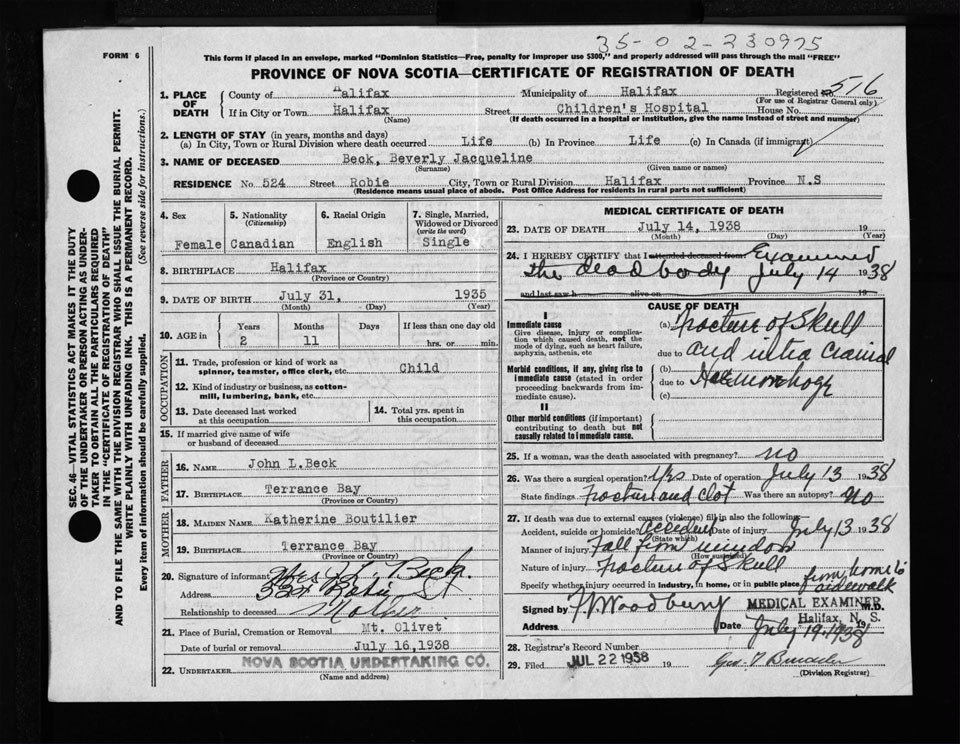 35-02-230975
FORM 6
This form if placed in an envelope, marked "Dominion Statistics—Free, penalty for improper use $300," and properly addressed will pass through the mail "FREE"
PROVINCE OF NOVA SCOTIA—CERTIFICATE OF REGISTRATION OF DEATH
1. PLACE OF DEATH
County of Halifax Municipality of Halifax Registered No. 516
(For use of Registrar General only)
If in City or Town Halifax Street Children's Hospital House No.
(Name) (If death occurred in a hospital or institution, give the name instead of street and number)
2. LENGTH OF STAY (in years, months and days)
(a) In City, Town or Rural Division where death occurred Life (b) In Province Life (c) In Canada (if immigrant)
3. NAME OF DECEASED Beck, Beverly Jacqueline
(Surname) (Given name or names)
RESIDENCE No. 524 Street Robie City, Town or Rural Division Halifax Province N.S
(Residence means usual place of abode. Post Office Address for residents in rural parts not sufficient)
SEC. 46—VITAL STATISTICS ACT MAKES IT THE DUTY
OF THE UNDERTAKER OR PERSON ACTING AS UNDER-
TAKER TO OBTAIN ALL THE PARTICULARS REQUIRED
IN THE "CERTIFICATE OF DEATH"
AND TO FILE THE SAME WITH THE DIVISION REGISTRAR WHO SHALL ISSUE THE BURIAL PERMIT.
WRITE PLAINLY WITH UNFADING INK. THIS IS A PERMANENT RECORD.
Every item of information should be carefully supplied. (See reverse side for instructions.)
4. Sex Female
5. Nationality (Citizenship) Canadian
6. Racial Origin English
7. Single, Married, Widowed or Divorced (write the word) Single
8. BIRTHPLACE Halifax
(Province or Country)
9. DATE OF BIRTH July 31, 1935
(Month) (Day) (Year)
10. AGE in Years Months Days If less than one day old
2 11 hrs. or min.
OCCUPATION
11. Trade, profession or kind of work as spinner, teamster, office clerk, etc. Child
12. Kind of industry or business, as cotton-mill, lumbering, bank, etc.
13. Date deceased last worked at this occupation
14. Total yrs. spent in this occupation
15. If married give name of wife or husband of deceased
FATHER
16. NAME John L. Beck
17. BIRTHPLACE Terrance Bay
(Province or Country)
MOTHER
18. MAIDEN NAME Katherine Boutilier
19. BIRTHPLACE Terrance Bay
(Province or Country)
20. Signature of informant Mrs J L. Beck.
Address Robie St
Relationship to deceased Mother
21. Place of Burial, Cremation or Removal Mt. Olivet
Date of burial or removal July 16,1938
22. UNDERTAKER NOVA SCOTIA UNDERTAKING CO.
(Name and address)
MEDICAL CERTIFICATE OF DEATH
23. DATE OF DEATH July 14, 1938 19
(Month) (Day) (Year)
24. I HEREBY CERTIFY that I attended deceased from Examined
the dead body July 14 1938
and last saw h alive on 19
CAUSE OF DEATH
I
Immediate cause
Give disease, injury or complication which caused death, not the mode of dying, such as heart failure, asphyxia, asthenia, etc
(a) Fracture of Skull
due to and intra Cranial
Morbid conditions, if any, giving rise to immediate cause (stated in order proceeding backwards from immediate cause).
(b)
due to Haemorrhage
(c)
II
Other morbid conditions (if important) contributing to death but not causally related to immediate cause.
25. If a woman, was the death associated with pregnancy? no
26. Was there a surgical operation? Yes Date of operation July 13 1938
State findings Fracture and clot Was there an autopsy? No
27. If death was due to external causes (violence) fill in also the following:
Accident, suicide or homicide? accident Date of injury July 13 1938
(State which)
Manner of injury Fall from window
(How sustained)
Nature of injury Fracture of Skull
Specify whether injury occurred in industry, in home, or in public place from home to sidewalk
Signed by Woodbury M.D.
MEDICAL EXAMINER
Halifax, N. S.
Address Date July 19, 1938
28. Registrar's Record Number
29. Filed JUL 22 1938 19
(Division Registrar)